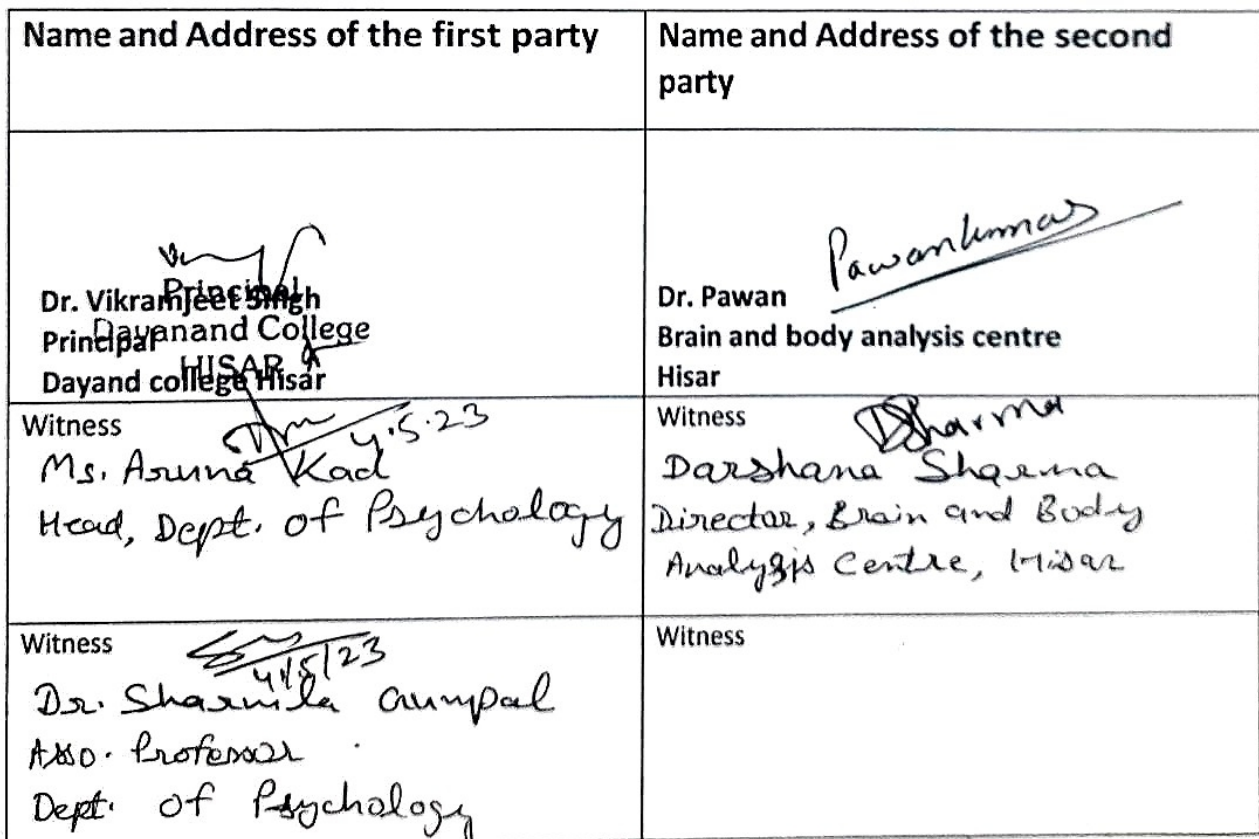 Name and Address of the first party
Name and Address of the second
party
Dr. Vikramjeet Singh
Principal
Dayand college Hisar
Principal
Dayanand College
HISAR
Pawankumar
Dr. Pawan
Brain and body analysis centre
Hisar
Witness
4.5.23
Ms. Aruna Kad
Head, Dept. of Psychology
Witness
DSharma
Darshana Sharma
Director, Brain and Body
Analysis Centre, Hisar
Witness
4/5/23
Dr. Sharmila Gunpal
Asso. Professor
Dept. of Psychology
Witness